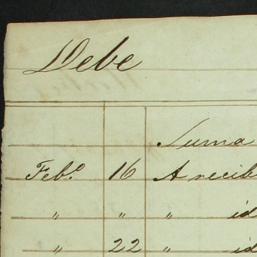 Debe
Suma
Feb.o 16 A recib
" " " id
" 22 " id